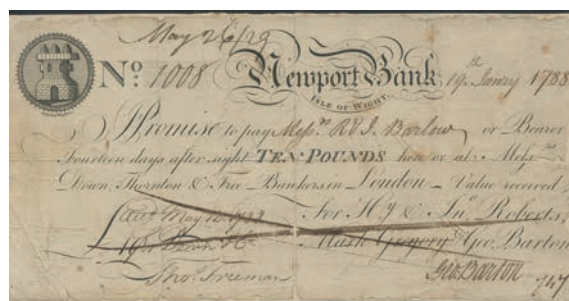 May 26/29
No: 1008 Newport Bank 19th Janry 1788
ISLE OF WIGHT.
I Promise to pay Messrs R & I. Barlow or Bearer
Fourteen days after sight TEN POUNDS here or at Messrs
Down, Thornton & Free Bankers in London Value received,
For H, J & Jno. Roberts,
Mark Gregory & Geo. Barton
Thos. Freeman
Geo Barton